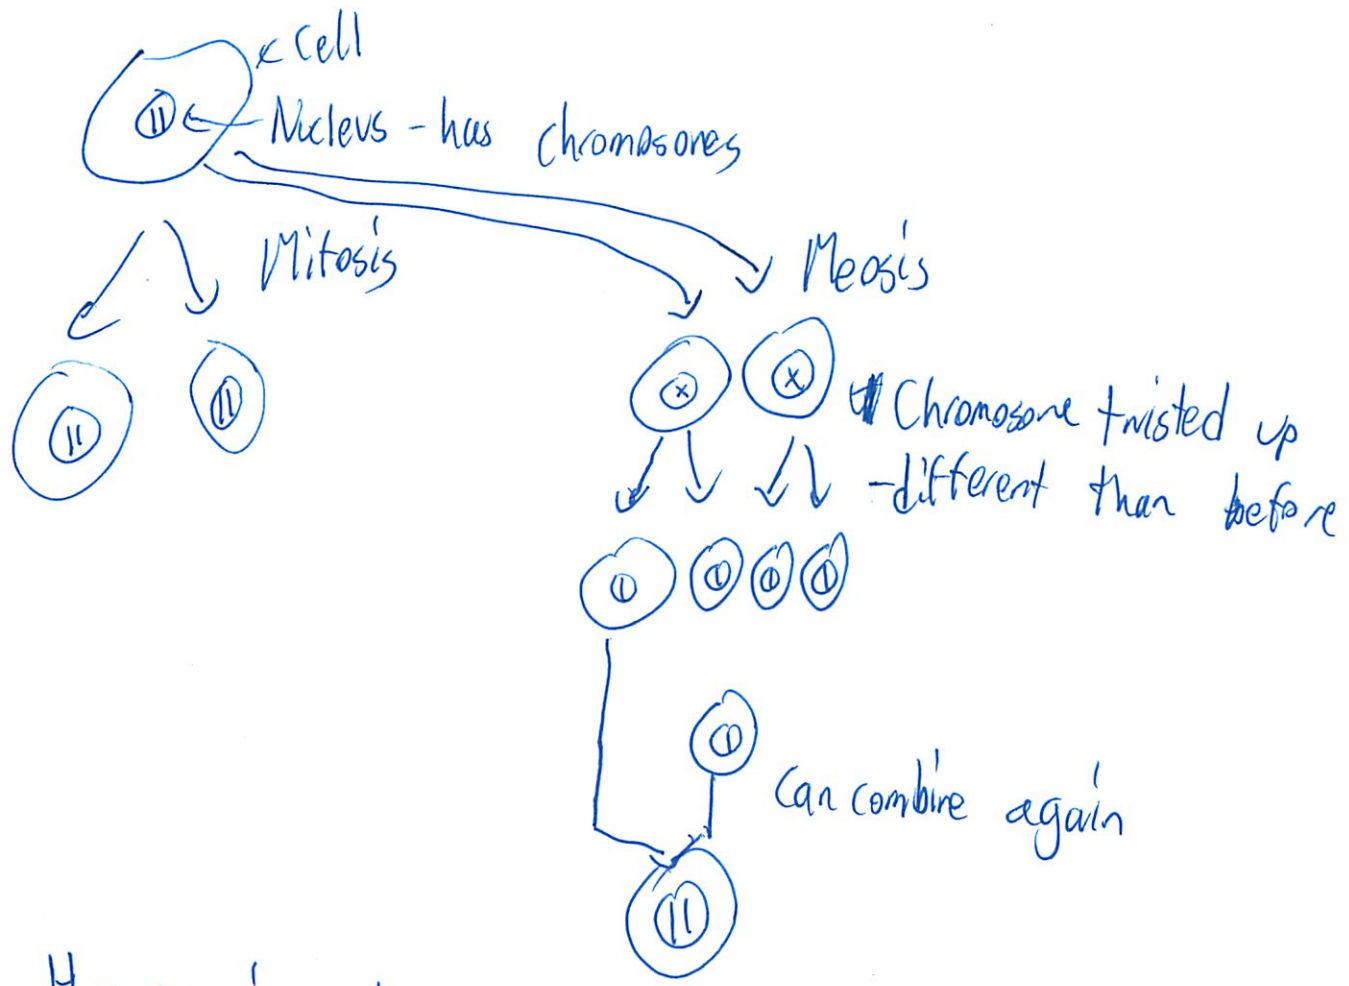 Cell
Nucleus - has chromosones
Mitosis
Meosis
Chromosone twisted up
- different than before
Can combine again